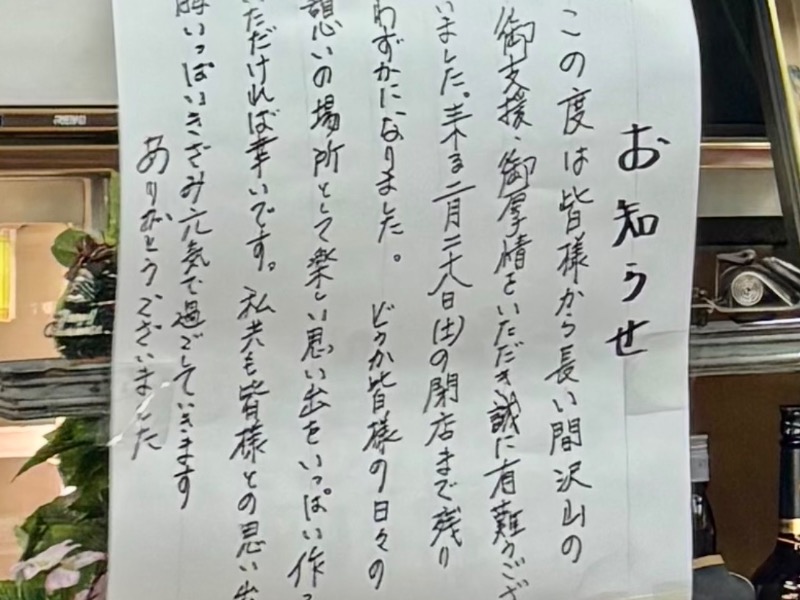 お知らせ
この度は皆様から長い間沢山の
御支援、御厚情をいただき誠に有難うござ
いました。来る二月二十八日(土)の閉店まで残り
わずかになりました。どうか皆様の日々の
憩いの場所として楽しい思い出をいっぱい作
いただければ幸いです。私共も皆様との思い出
胸いっぱいきざみ元気で過ごしていきます
ありがとうございました